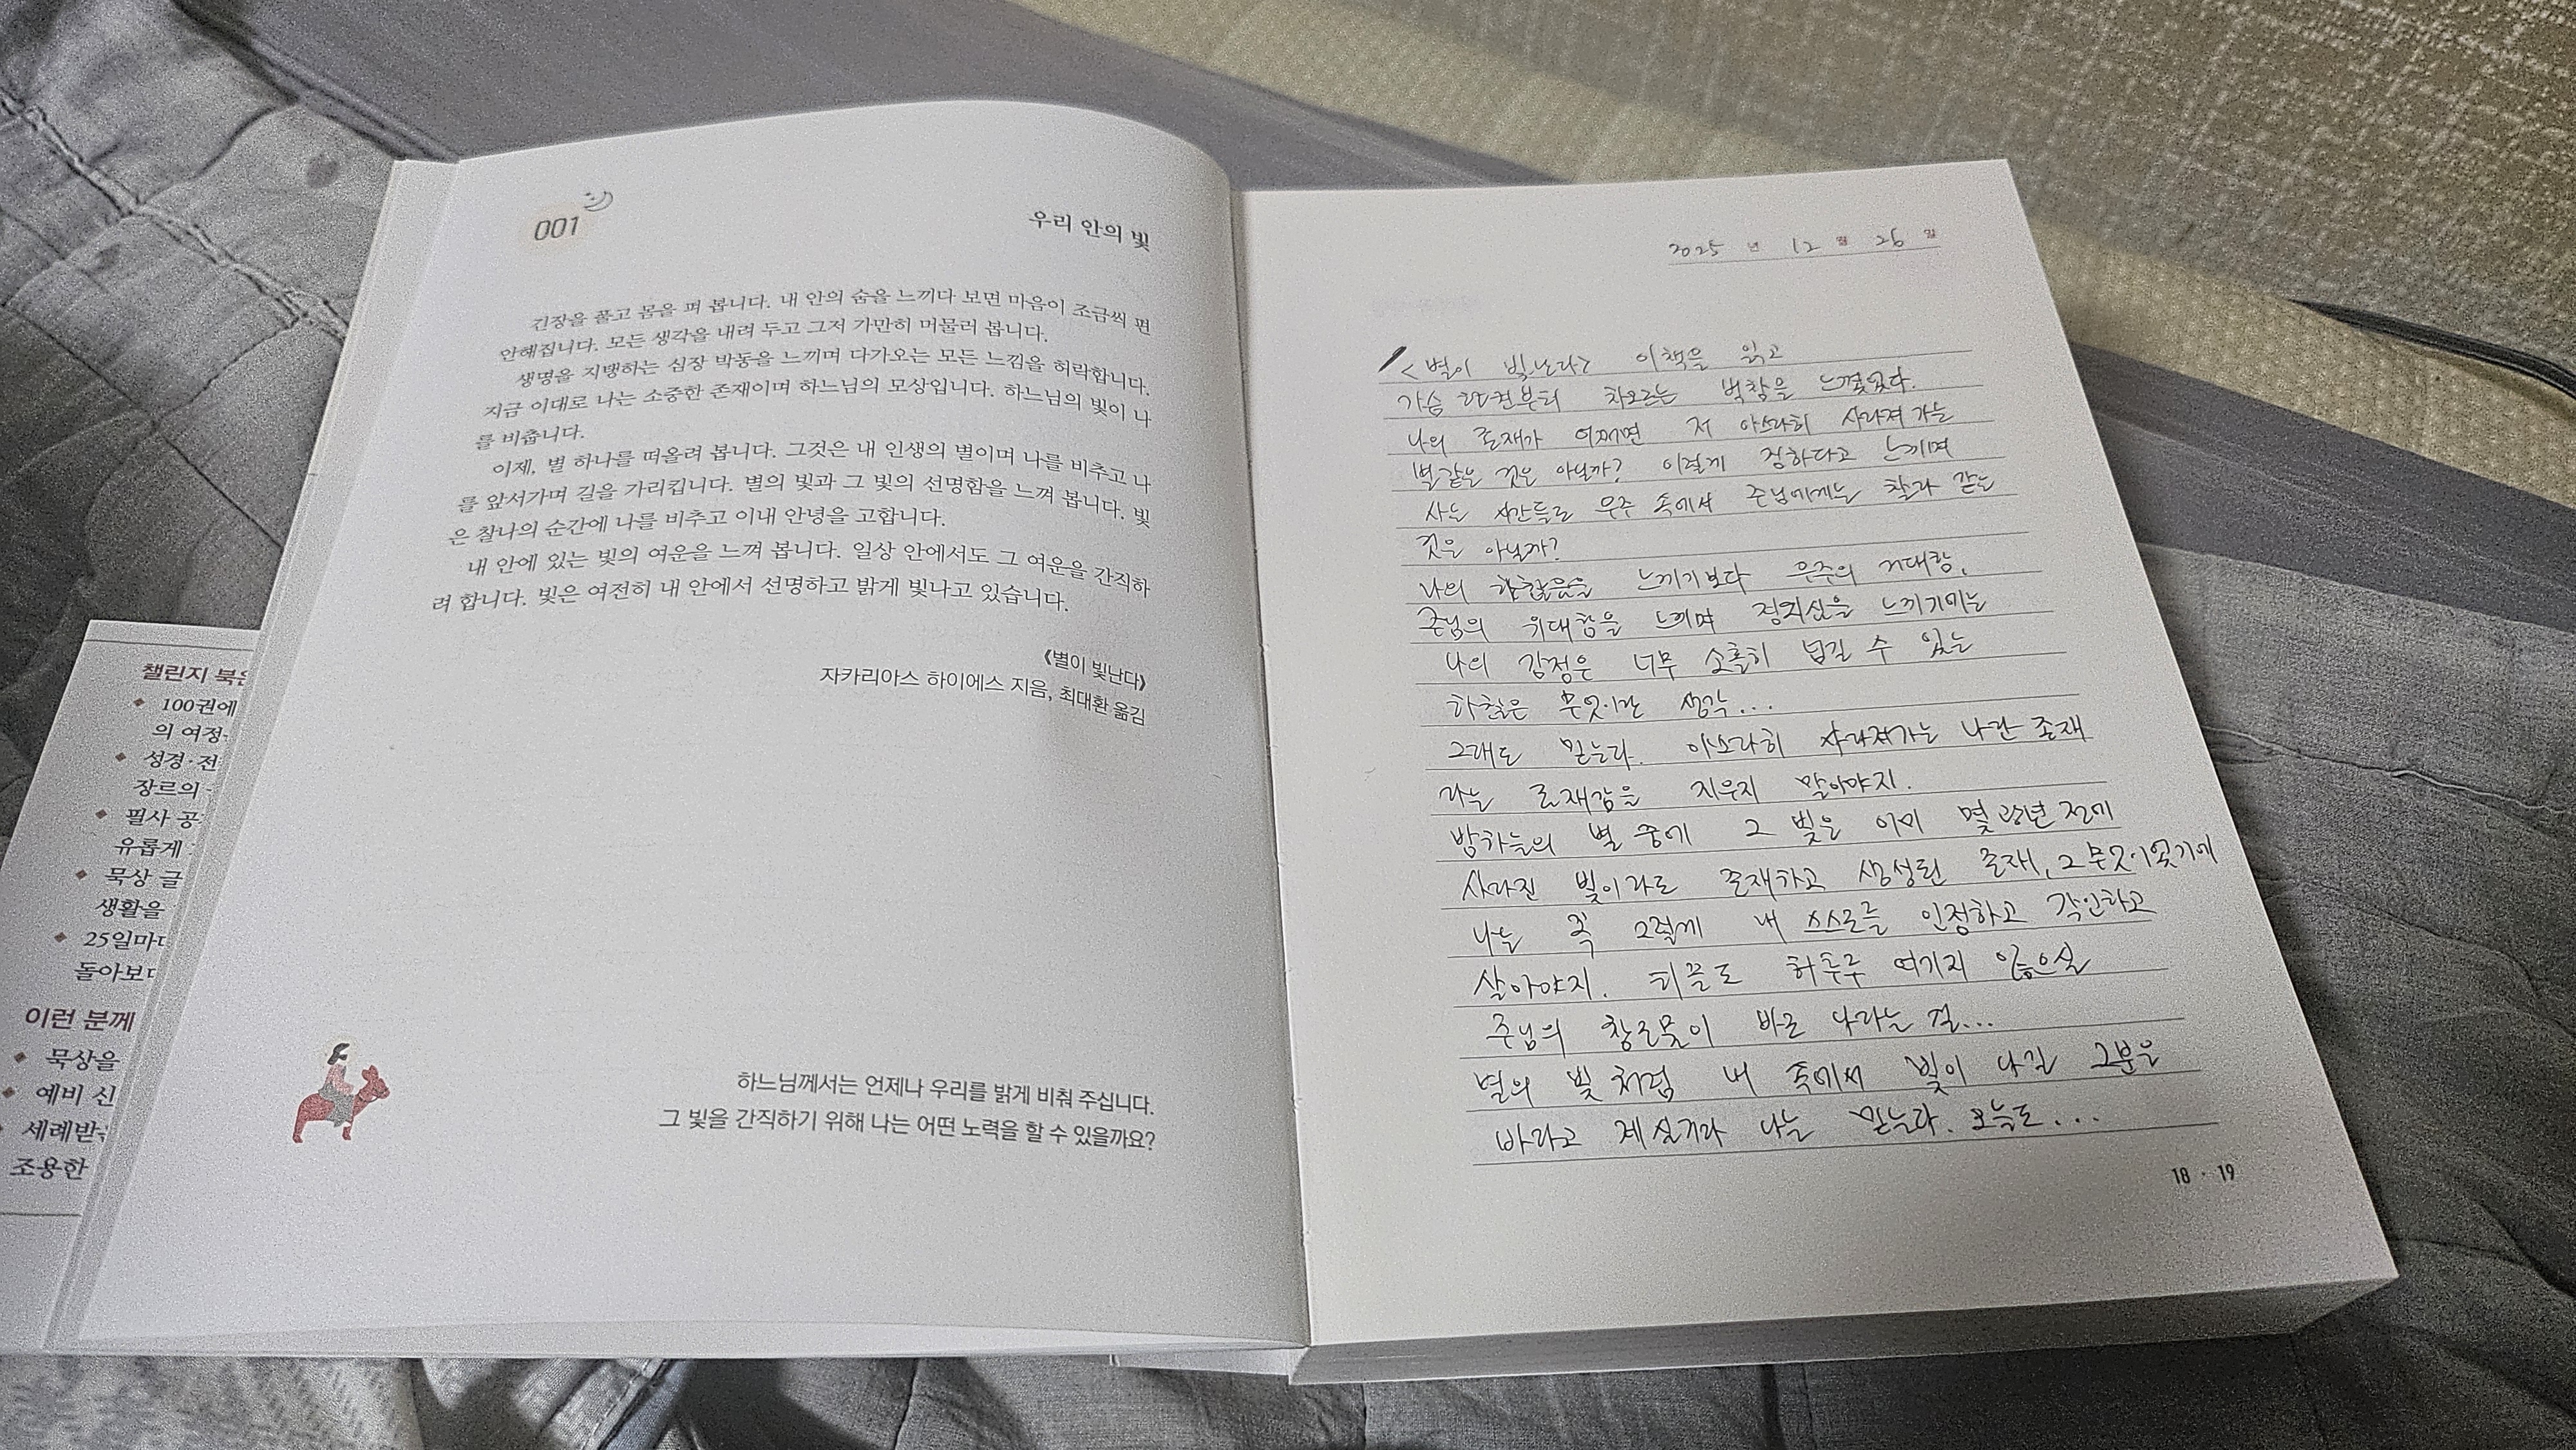 001
우리 안의 빛
긴장을 풀고 몸을 펴 봅니다. 내 안의 숨을 느끼다 보면 마음이 조금씩 편
안해집니다. 모든 생각을 내려 두고 그저 가만히 머물러 봅니다.
생명을 지탱하는 심장 박동을 느끼며 다가오는 모든 느낌을 허락합니다.
지금 이대로 나는 소중한 존재이며 하느님의 모상입니다. 하느님의 빛이 나
를 비춥니다.
이제, 별 하나를 떠올려 봅니다. 그것은 내 인생의 별이며 나를 비추고 나
를 앞서가며 길을 가리킵니다. 별의 빛과 그 빛의 선명함을 느껴 봅니다. 빛
은 찰나의 순간에 나를 비추고 이내 안녕을 고합니다.
내 안에 있는 빛의 여운을 느껴 봅니다. 일상 안에서도 그 여운을 간직하
려 합니다. 빛은 여전히 내 안에서 선명하고 밝게 빛나고 있습니다.
《별이 빛난다》
자카리아스 하이에스 지음, 최대환 옮김
하느님께서는 언제나 우리를 밝게 비춰 주십니다.
그 빛을 간직하기 위해 나는 어떤 노력을 할 수 있을까요?
챌린지 북은
100권에
의 여정
성경·전
장르의
필사 공
유롭게
묵상 글
생활을
25일마다
돌아보다
이런 분께
묵상을
예비 신
세례받
조용한
2025 년 12 월 26 일
<별이 빛난다> 이책을 읽고
가슴 한켠부터 차오르는 벅참을 느꼈었다.
나의 존재가 어쩌면 저 아스라히 사라져 가는
별같은 것은 아닐까? 이렇게 정하다고 느끼며
사는 시간들도 우주 속에서 주님에게는 찰라 같은
것은 아닐까?
나의 느끼기보다 우주의 거대함,
주님의 위대함을 느끼며 경외심을 느끼기에는
나의 감정은 너무 소홀히 넘길 수 있는
하찮은 무엇이란 생각...
그래도 믿는다. 아스라히 사라져가는 나란 존재
라는 존재감을 지우지 말아야지.
밤하늘의 별 중에 그 빛은 이미 몇 광년 전에
사라진 빛이라도 존재하고 생성된 존재, 그 무엇이었기에
나는 꼭 그렇게 내 스스로를 인정하고 각인하고
살아야지. 티끌도 허투루 여기지 않으실
주님의 창조물이 바로 나라는 걸...
별의 빛 처럼 내 속에서 빛이 나길 그분은
바라고 계실거라 나는 믿는다. 오늘도....
18 · 19